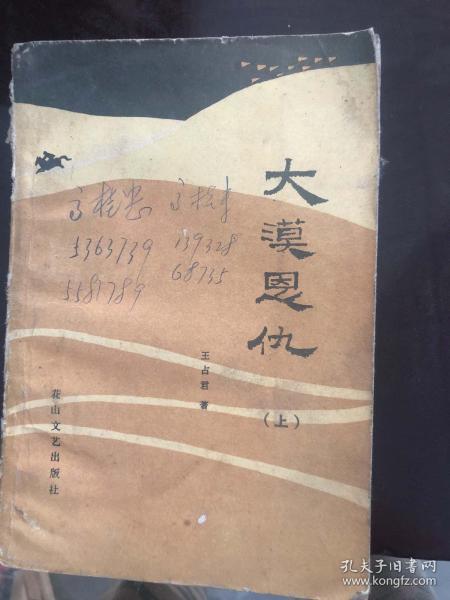 大漠恩仇
(上)
王占君 著
高桂忠
5363739
5581789
高桂丰
139328
68735
花山文艺出版社
孔夫子旧书网
www.kongfz.com